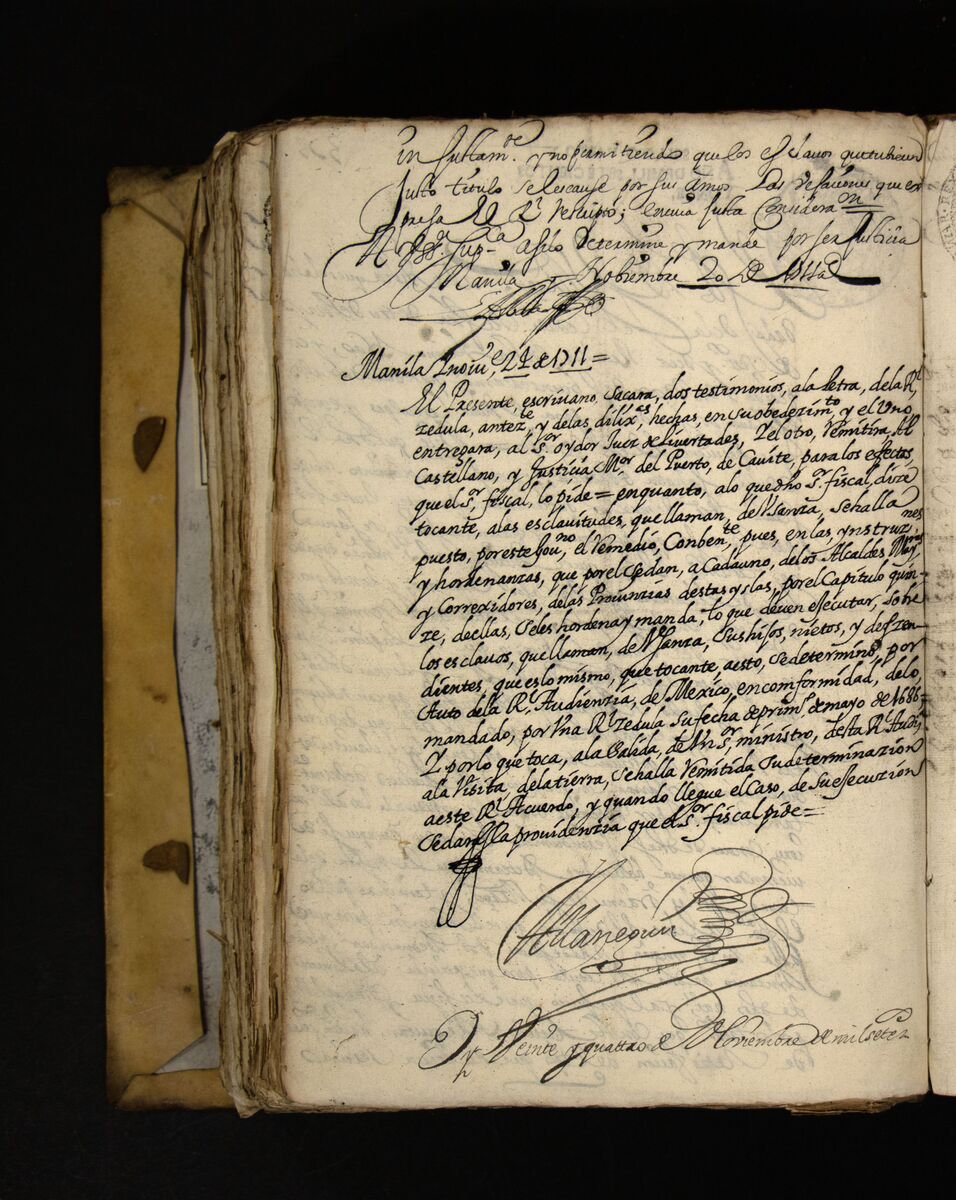 justo titulo se les cause por sus amos Las vejaciones que ex
asi lo determine y mande por ser justicia
Manila y Nobiembre 20 de 1711 a.
Manila y Novi.e 24 de 1711 =
El Presente, escrivano, sacara, dos testimonios, ala letra, dela R.l
zedula, antez.te y delas dilix.as hechas, en su obedezim.to, y el Uno
entregara, al s.or oydor Juez de Livertades, Y el otro, Remitira, Al
Castellano, y Justicia M.or del Puerto, de Cavite, para los efectos,
que el s.or fiscal, lo pide = en quanto, alo que dho s.or fiscal, dize
tocante, alas esclavitudes, que llaman, de Usanza, se halla
puesto, por este Gov.no, el Remedio, Conben.te, pues, en las, ynstruz.nes
y hordenanzas, que por el se dan, a Cada uno, delos Alcaldes May.res
y Correxidores, delas Provinzias destas yslas, por el Capitulo quin-
ze, de ellas, se les hordena y manda, lo que deven executar, sobre
los esclavos, que llaman, de Usanza, sus hijos, nietos, y deszen-
dientes, que es lo mismo, que tocante, aesto, se determino, por
Auto dela R.l Audienzia, de Mexico, en comformidad, delo,
mandado, por Una R.l zedula su fecha de prim.o de mayo de 1686;
Y por lo que toca, ala salida, de Un s.or ministro, desta R.l Audi.a
ala Visita, dela tierra, se halla Remitida su determinazion
aeste R.l Acuerdo, y quando llegue el Caso, de su execuzion
se dara la providenzia que el s.or fiscal pide =
En Veinte y quattro de Noviembre de mil setez